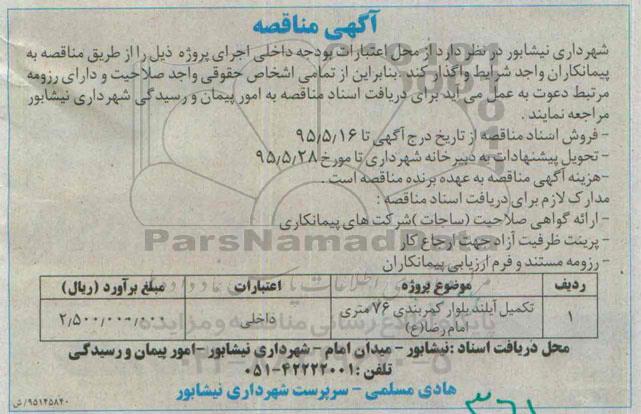 آگهی مناقصه
شهرداری نیشابور در نظر دارد از محل اعتبارات بودجه داخلی اجرای پروژه ذیل را از طریق مناقصه به
پیمانکاران واجد شرایط واگذار کند .بنابراین از تمامی اشخاص حقوقی واجد صلاحیت و دارای رزومه
مرتبط دعوت به عمل می آید برای دریافت اسناد مناقصه به امور پیمان و رسیدگی شهرداری نیشابور
مراجعه نمایند .
- فروش اسناد مناقصه از تاریخ درج آگهی تا ۹۵٫۵٫۱۶
- تحویل پیشنهادات به دبیرخانه شهرداری تا مورخ ۹۵٫۵٫۲۸
-هزینه آگهی مناقصه به عهده برنده مناقصه است .
مدارک لازم برای دریافت اسناد مناقصه :
- ارائه گواهی صلاحیت (ساجات )شرکت های پیمانکاری
- پرینت ظرفیت آزاد جهت ارجاع کار
- رزومه مستند و فرم ارزیابی پیمانکاران
ParsNamadData
ردیف موضوع پروژه اعتبارات مبلغ برآورد (ریال)
۱ تکمیل آیلند بلوار کمربندی ۷۶ متری امام رضا(ع) داخلی ۲٫۵۰۰٫۰۰۰٫۰۰۰
محل دریافت اسناد :نیشابور - میدان امام - شهرداری نیشابور -امور پیمان و رسیدگی
تلفن :۴۲۲۲۲۰۰۱-۰۵۱
هادی مسلمی - سرپرست شهرداری نیشابور
۹۵۱۴۵۸۴۰/ش
۳۶۱